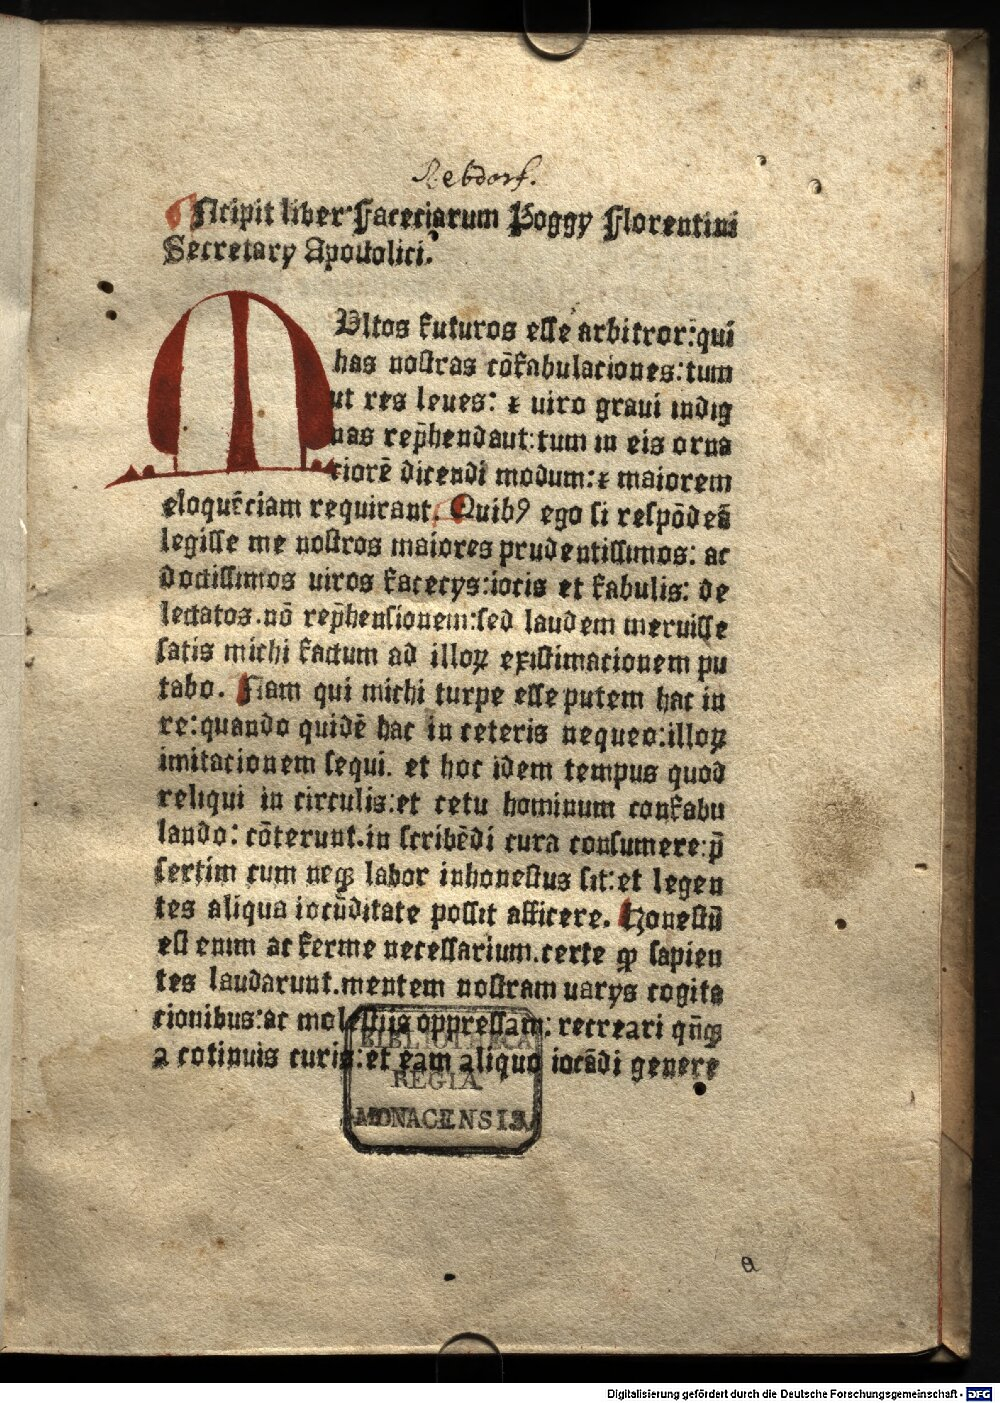 Rebdorf.
Incipit liber Faceciarum Poggy Florentini
Secretary Apostolici.
MVltos futuros esse arbitror: qui
has nostras cōfabulaciones: tum
ut res leues: ⁊ uiro graui indig
nas rep̄hendant: tum in eis orna
ciorē dicendi modum: ⁊ maiorem
eloquēciam requirant. Quibꝰ ego si respōdeā
legisse me nostros maiores prudentissimos: ac
doctissimos uiros facecys: iocis et fabulis: de
lectatos. nō rep̄hensionem: sed laudem meruisse
satis michi factum ad illoꝝ existimacionem pu
tabo. Nam qui michi turpe esse putem hac in
re: quando quidē hac in ceteris nequeo: illoꝝ
imitacionem sequi. et hoc idem tempus quod
reliqui in circulis: et cetu hominum confabu
lando: cōterunt. in scribēdi cura consumere: p̄
sertim cum neqꝫ labor inhonestus sit: et legen
tes aliqua iocūditate possit afficere. Honestū
est enim ac ferme necessarium. certe ꝙ sapien
tes laudarunt. mentem nostram uarys cogita
cionibus: ac molestiis oppressam: recreari qn̄qꝫ
a cotinuis curis: et eam aliquo iocādi genere
BIBLIOTHECA
REGIA
MONACENSIS
a
Digitalisierung gefördert durch die Deutsche Forschungsgemeinschaft - DFG